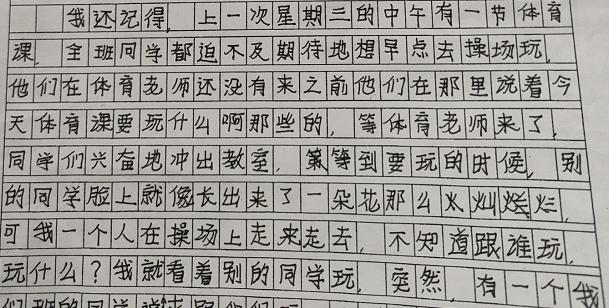 我还记得，上一次星期三的中午有一节体育
课，全班同学都迫不及期待地想早点去操场玩，
他们在体育老师还没有来之前他们在那里说着今
天体育课要玩什么啊那些的，等体育老师来了，
同学们兴奋地冲出教室，等到要玩的时候，别
的同学脸上就像长出来了一朵花那么火灿烂，
可我一个人在操场上走来走去，不知道跟谁玩，
玩什么？我就看着别的同学玩，突然，有一个我
们班的同学说